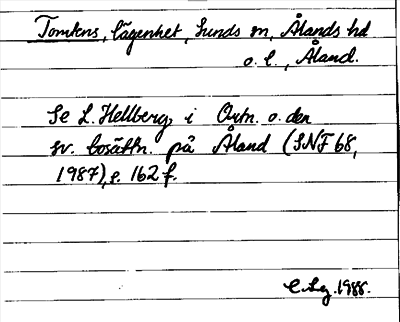 Tomtens, lägenhet, Sunds sn, Ålands hd
o. l., Åland.
Se L. Hellberg, i Ortn. o. den
sv. bosättn. på Åland (SNF 68,
1987), s. 162 f.
1988.